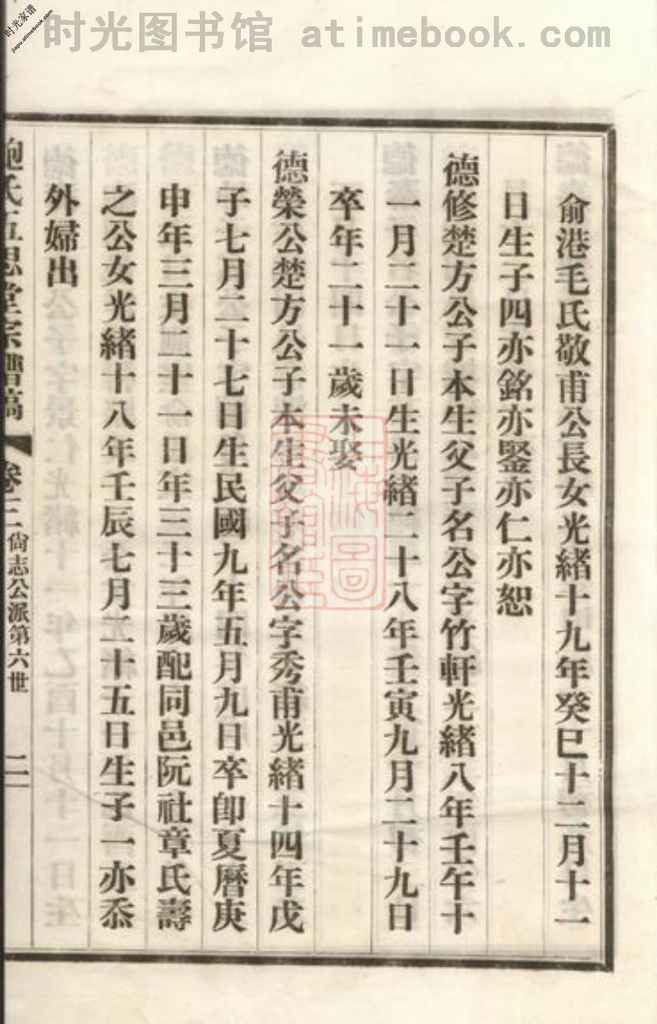 时光图书馆 atimebook.com
时光家谱
jiapu.atimebook.com
俞港毛氏敬甫公長女光緒十九年癸巳十二月十一
日生子四亦銘亦鋻亦仁亦恕
德修楚方公子本生父子名公字竹軒光緒八年壬午十
一月二十一日生光緒二十八年壬寅九月二十九日
卒年二十一歲未娶
德榮公楚方公子本生父子名公字秀甫光緒十四年戊
子七月二十七日生民國九年五月九日卒卽夏曆庚
申年三月二十一日年三十三歲配同邑阮社章氏壽
之公女光緒十八年壬辰七月二十五日生子一亦忝
外婦出
鮑氏五思堂宗譜稿 卷三 尙志公派第六世 二